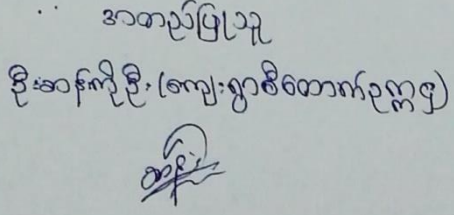 အတည်ပြုသူ
ဦးဆန်းကိုဦး (ကျေးရွာစီတောက်ဥက္ကဌ)